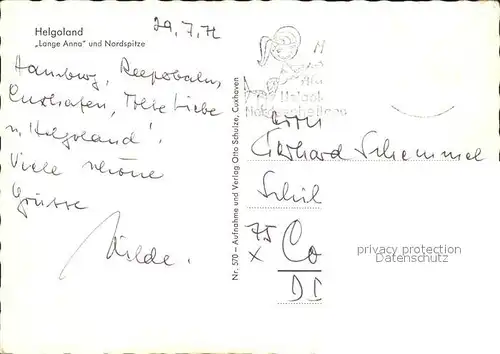 Helgoland
„Lange Anna“ und Nordspitze
29.7.72
Hamburg, Reeperbahn,
Cuxhafen, Tolle Liebe
u. Helgoland'.
Viele schöne
Grüsse
Hilde.
Nr. 570 – Aufnahme und Verlag Otto Schulze, Cuxhaven
Herrn
Eberhard Schemmel
Schil
75
x
Co
DD
privacy protection
Datenschutz